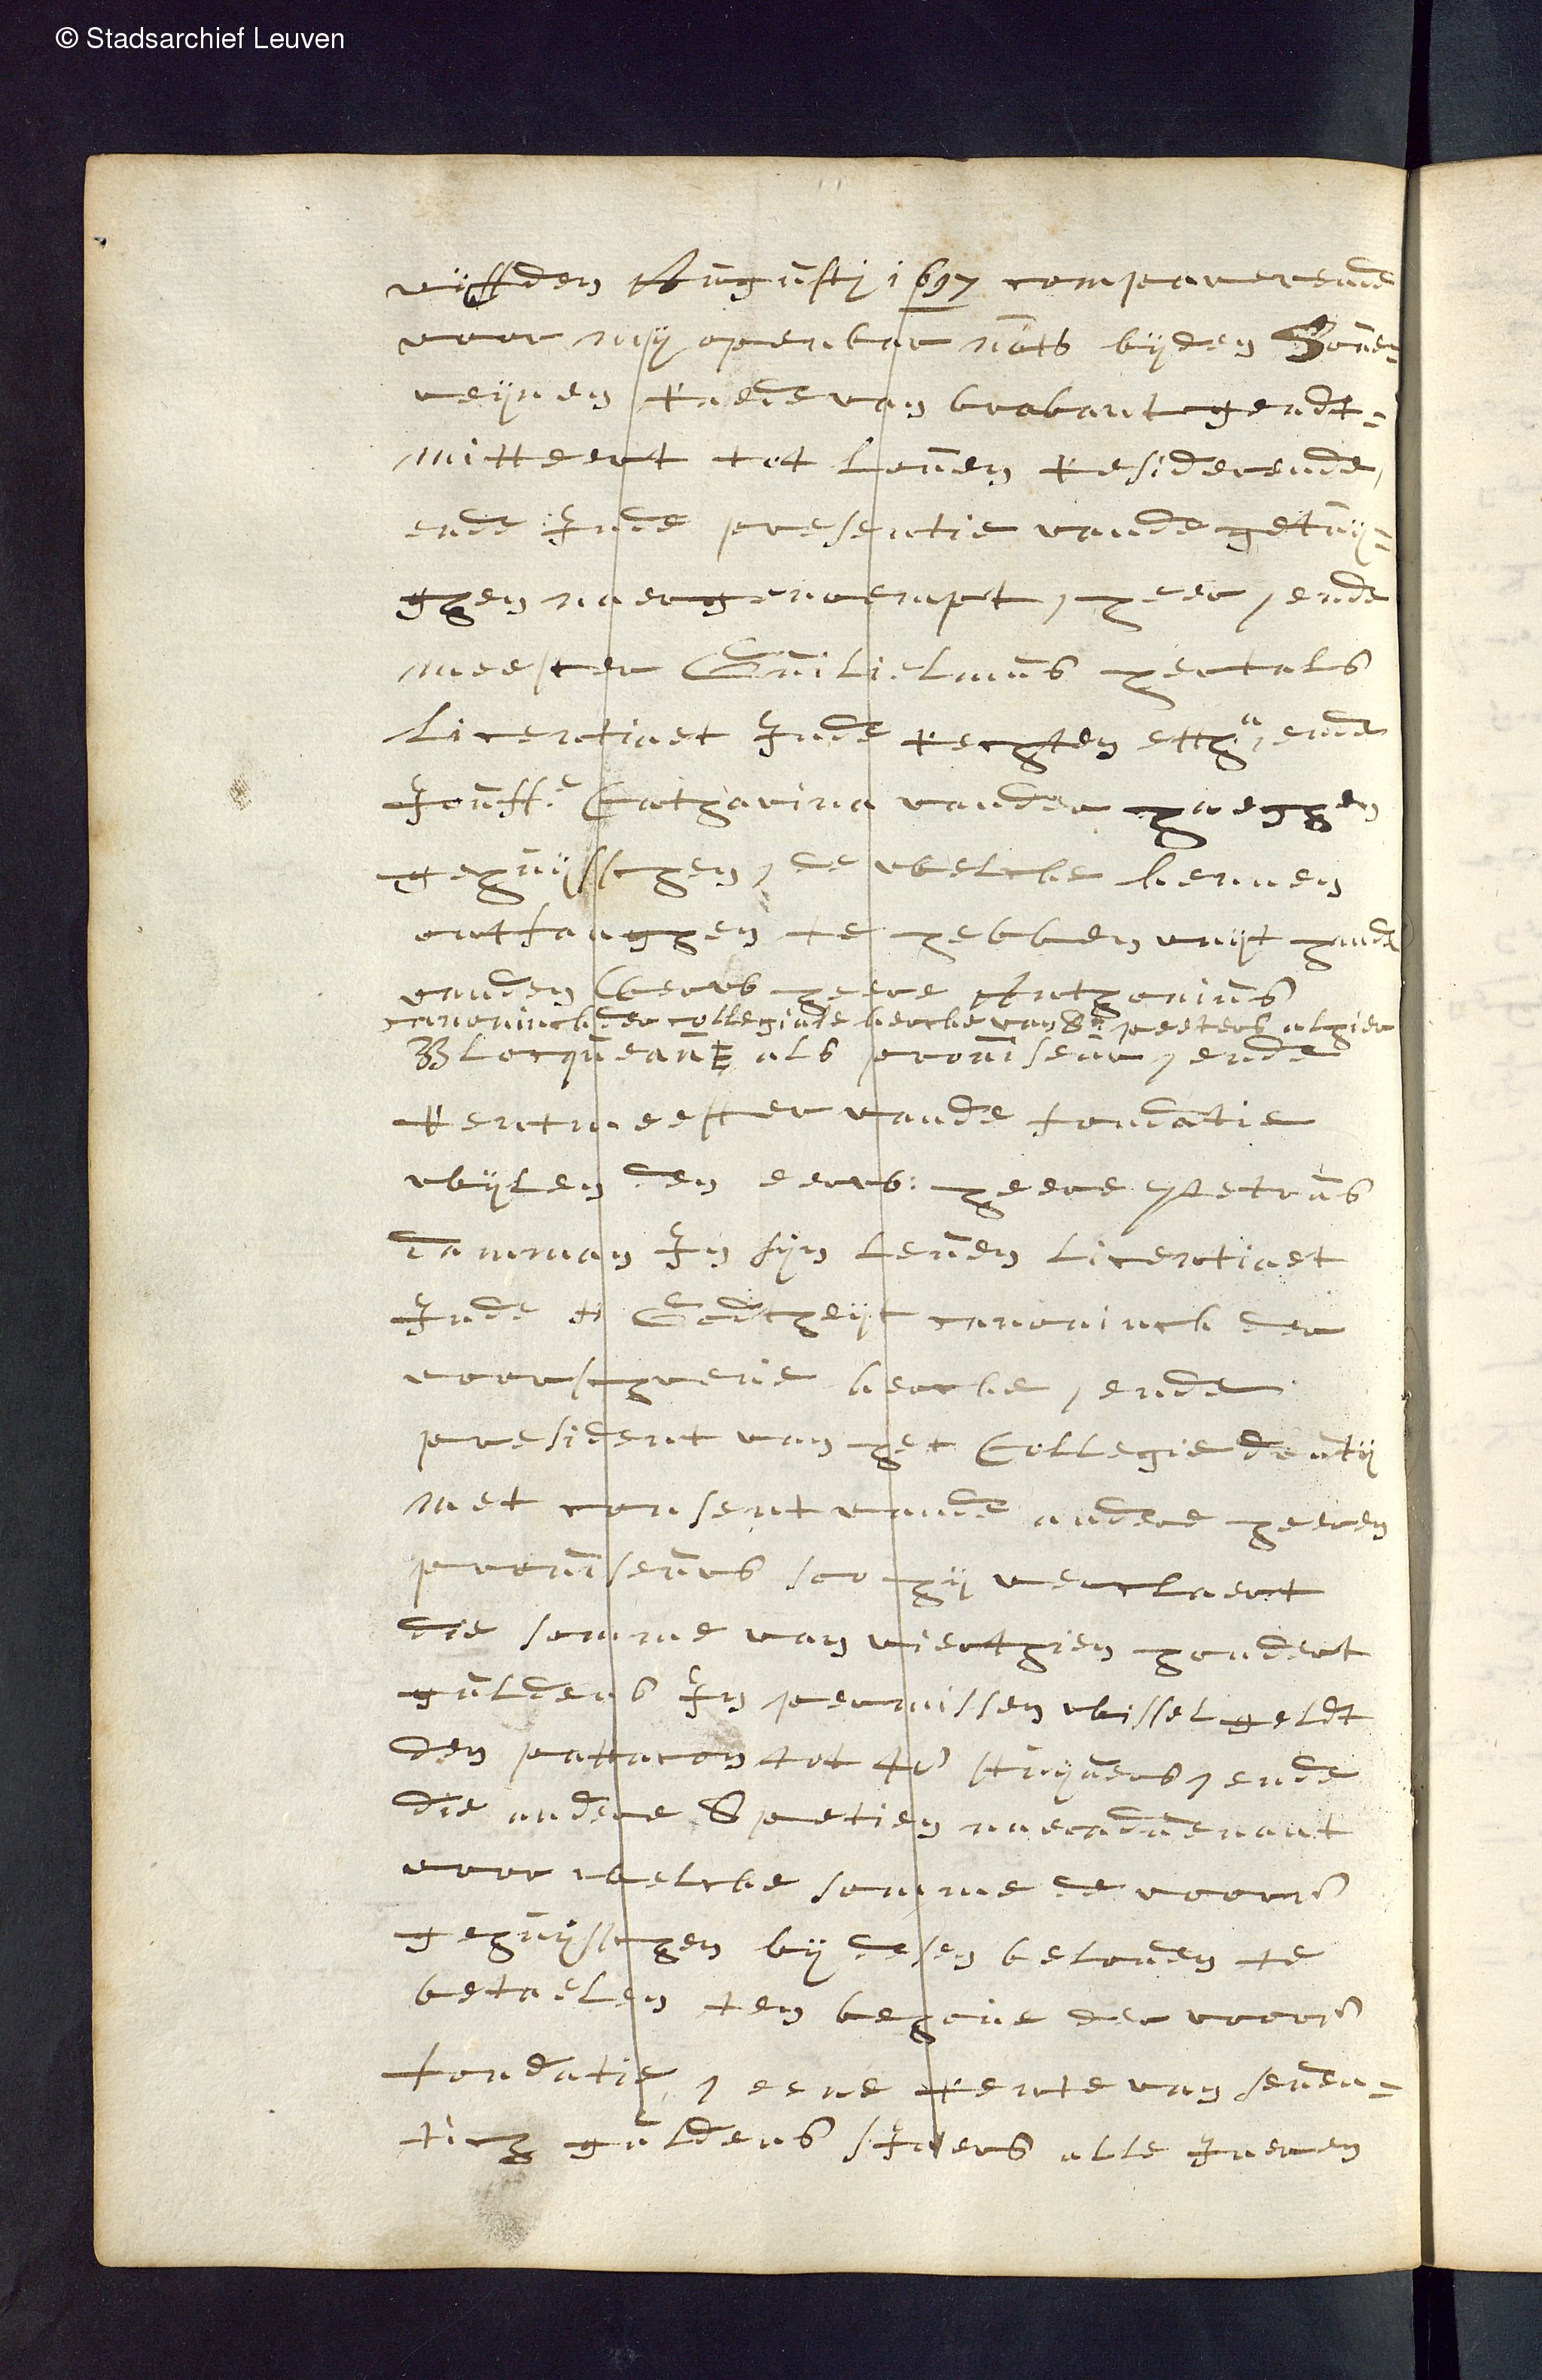 © Stadsarchief Leuven
vijffden Augusti 1697 comparerende
voor mij openbaer nots bijden Souve-
reijnen Raede van brabant geadt-
mitteert tot Loven Residerende,
ende Inde presentie vande getuij-
ghen naergenoempt, heer, ende
meester Guilielmus hertals
Licentiaet Inde Rechten etthª, ende
Jouffe Catharina vander haeghen
gehuijsschen, de welcke kennen
ontfanghen te hebben uuijt hande
vanden Eerws heere Anthonius
canoninck der collegiale kercke van St peeters alhier
Blocqueau als proviseur, ende
Rentmeester vande fondatie
wijlen den eerws: heere Petrus
Damman In sijn leven Licentiaet
Inde Godtheijt canoninck der
voorschreve kercke, ende
president van het Collegie drutij
met consent vande andere heeren
proviseurs soo hij verclaert
die somme van vierthien hondert
guldens In permissen wissel geldt
den pattacon tot 48 stuijvers, ende
die andere Spetien naer advenant
voor welcke somme de voors
gehuijschen bij desen beloven te
betaelen ten behoive der voors
fondatie, eene Rente van seven-
tich guldens sJaers alle Jaeren